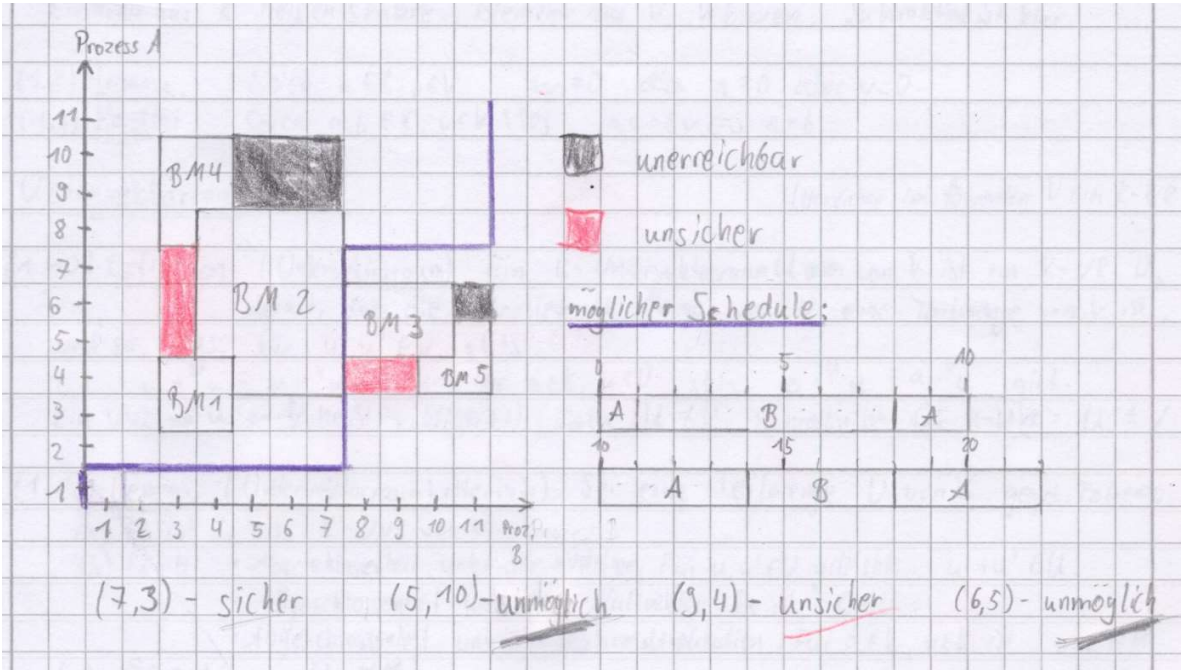 Prozess A
11
10
9
8
7
6
5
4
3
2
1
BM4
BM2
BM3
BM5
BM1
1 2 3 4 5 6 7 8 9 10 11
B
unerreichbar
unsicher
möglicher Schedule:
0 5 10
A B A
10 15 20
A B A
(7,3) - sicher (5,10) - unmöglich (9,4) - unsicher (6,5) - unmöglich